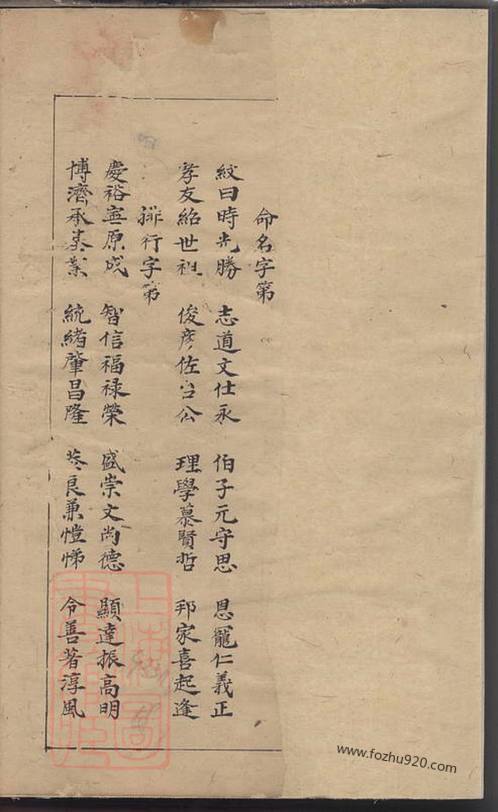 命名字第
紋曰時先勝 志道文仕永 伯子元守思 恩寵仁義正
孝友紹世祖 俊彥佐台公 理學慕賢哲 邦家喜起逢
排行字第
慶裕寧原成 智信福祿榮 盛崇文尚德 顯達振高明
博濟承美業 統緒肇昌隆 恭良兼愷悌 令善著淳風
上海圖書館藏
www.fozhu920.com